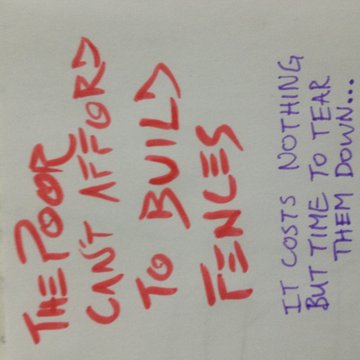 THE POOR
CAN'T AFFORD
TO BUILD
FENCES
IT COSTS NOTHING
BUT TIME TO TEAR
THEM DOWN...